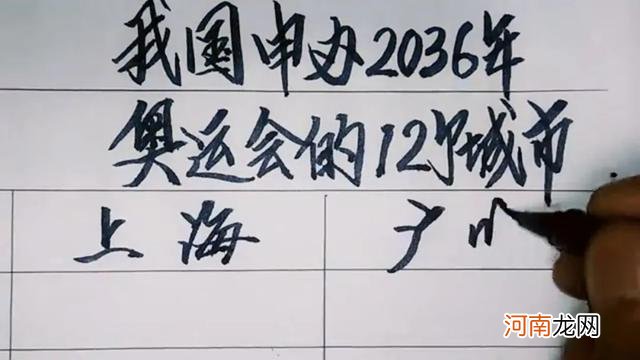 我国申办2036年
奥运会的12个城市
上海 广
河南龙网